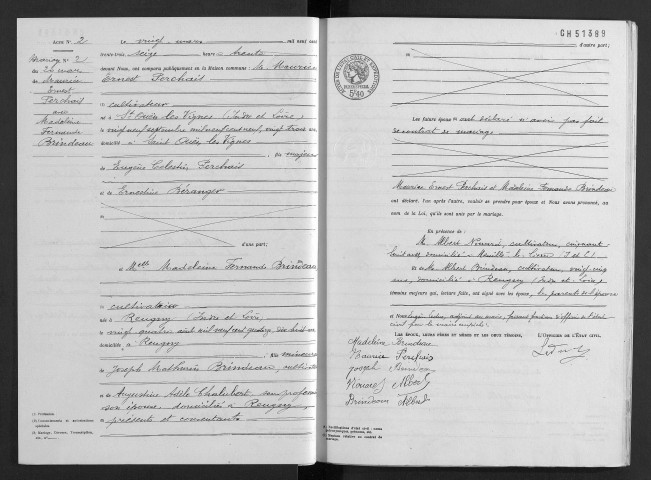 Acte N° 2
Mariage N° 2
du 20 mars
Maurice
Ernest
Perchais
avec
Madeleine
Fernande
Brindeau
Le vingt mars mil neuf cent
trente trois seize heures trente
devant Nous, ont comparu publiquement en la Maison commune : M. Maurice
Ernest Perchais
cultivateur
né à St Ouen les Vignes (Indre et Loire)
le vingt neuf septembre mil neuf cent neuf, vingt trois ans
domicilié à Saint Ouen les Vignes
fils majeur
de Eugène Célestin Perchais
et de Ernestine Béranger
d'une part ;
et Melle Madeleine Fernande Brindeau,
cultivatrice
née à Reugny (Indre et Loire)
le vingt août mil neuf cent quatorze, dix huit ans
domiciliée à Reugny
fille mineure
de Joseph Mathurin Brindeau, cultivateur
et de Augustine Adèle Chalubert sans profession
son épouse, domiciliés à Reugny,
présents et consentants
(1) Profession.
GH51389
d'autre part ;
5F40
Les futurs époux ont déclaré n'avoir pas fait
de contrat de mariage
Maurice Ernest Perchais et Madeleine Fernande Brindeau
ont déclaré, l'un après l'autre, vouloir se prendre pour époux et Nous avons prononcé, au
nom de la Loi, qu'ils sont unis par le mariage.
En présence de
M. Albert cultivateur, cinquante
huit ans, domicilié à (I et L)
et de M. Albert Brindeau, cultivateur, vingt cinq
ans, domicilié à Reugny (Indre et Loire),
témoins majeurs qui, lecture faite, ont signé avec les époux, les parents de l'épouse
et Nous adjoint au maire, faisant fonctions d'officier de l'état
civil pour le maire empêché.
LES ÉPOUX, LEURS PÈRES ET MÈRES ET LES DEUX TÉMOINS, L'OFFICIER DE L'ÉTAT CIVIL,
Madeleine Brindeau
Maurice Perchais
Joseph Brindeau
Albert
Brindeau Albert